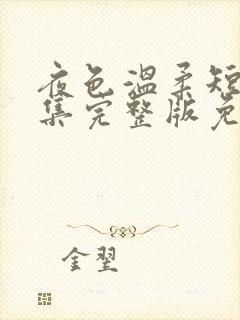 夜色温柔短
集完整版免
金翌